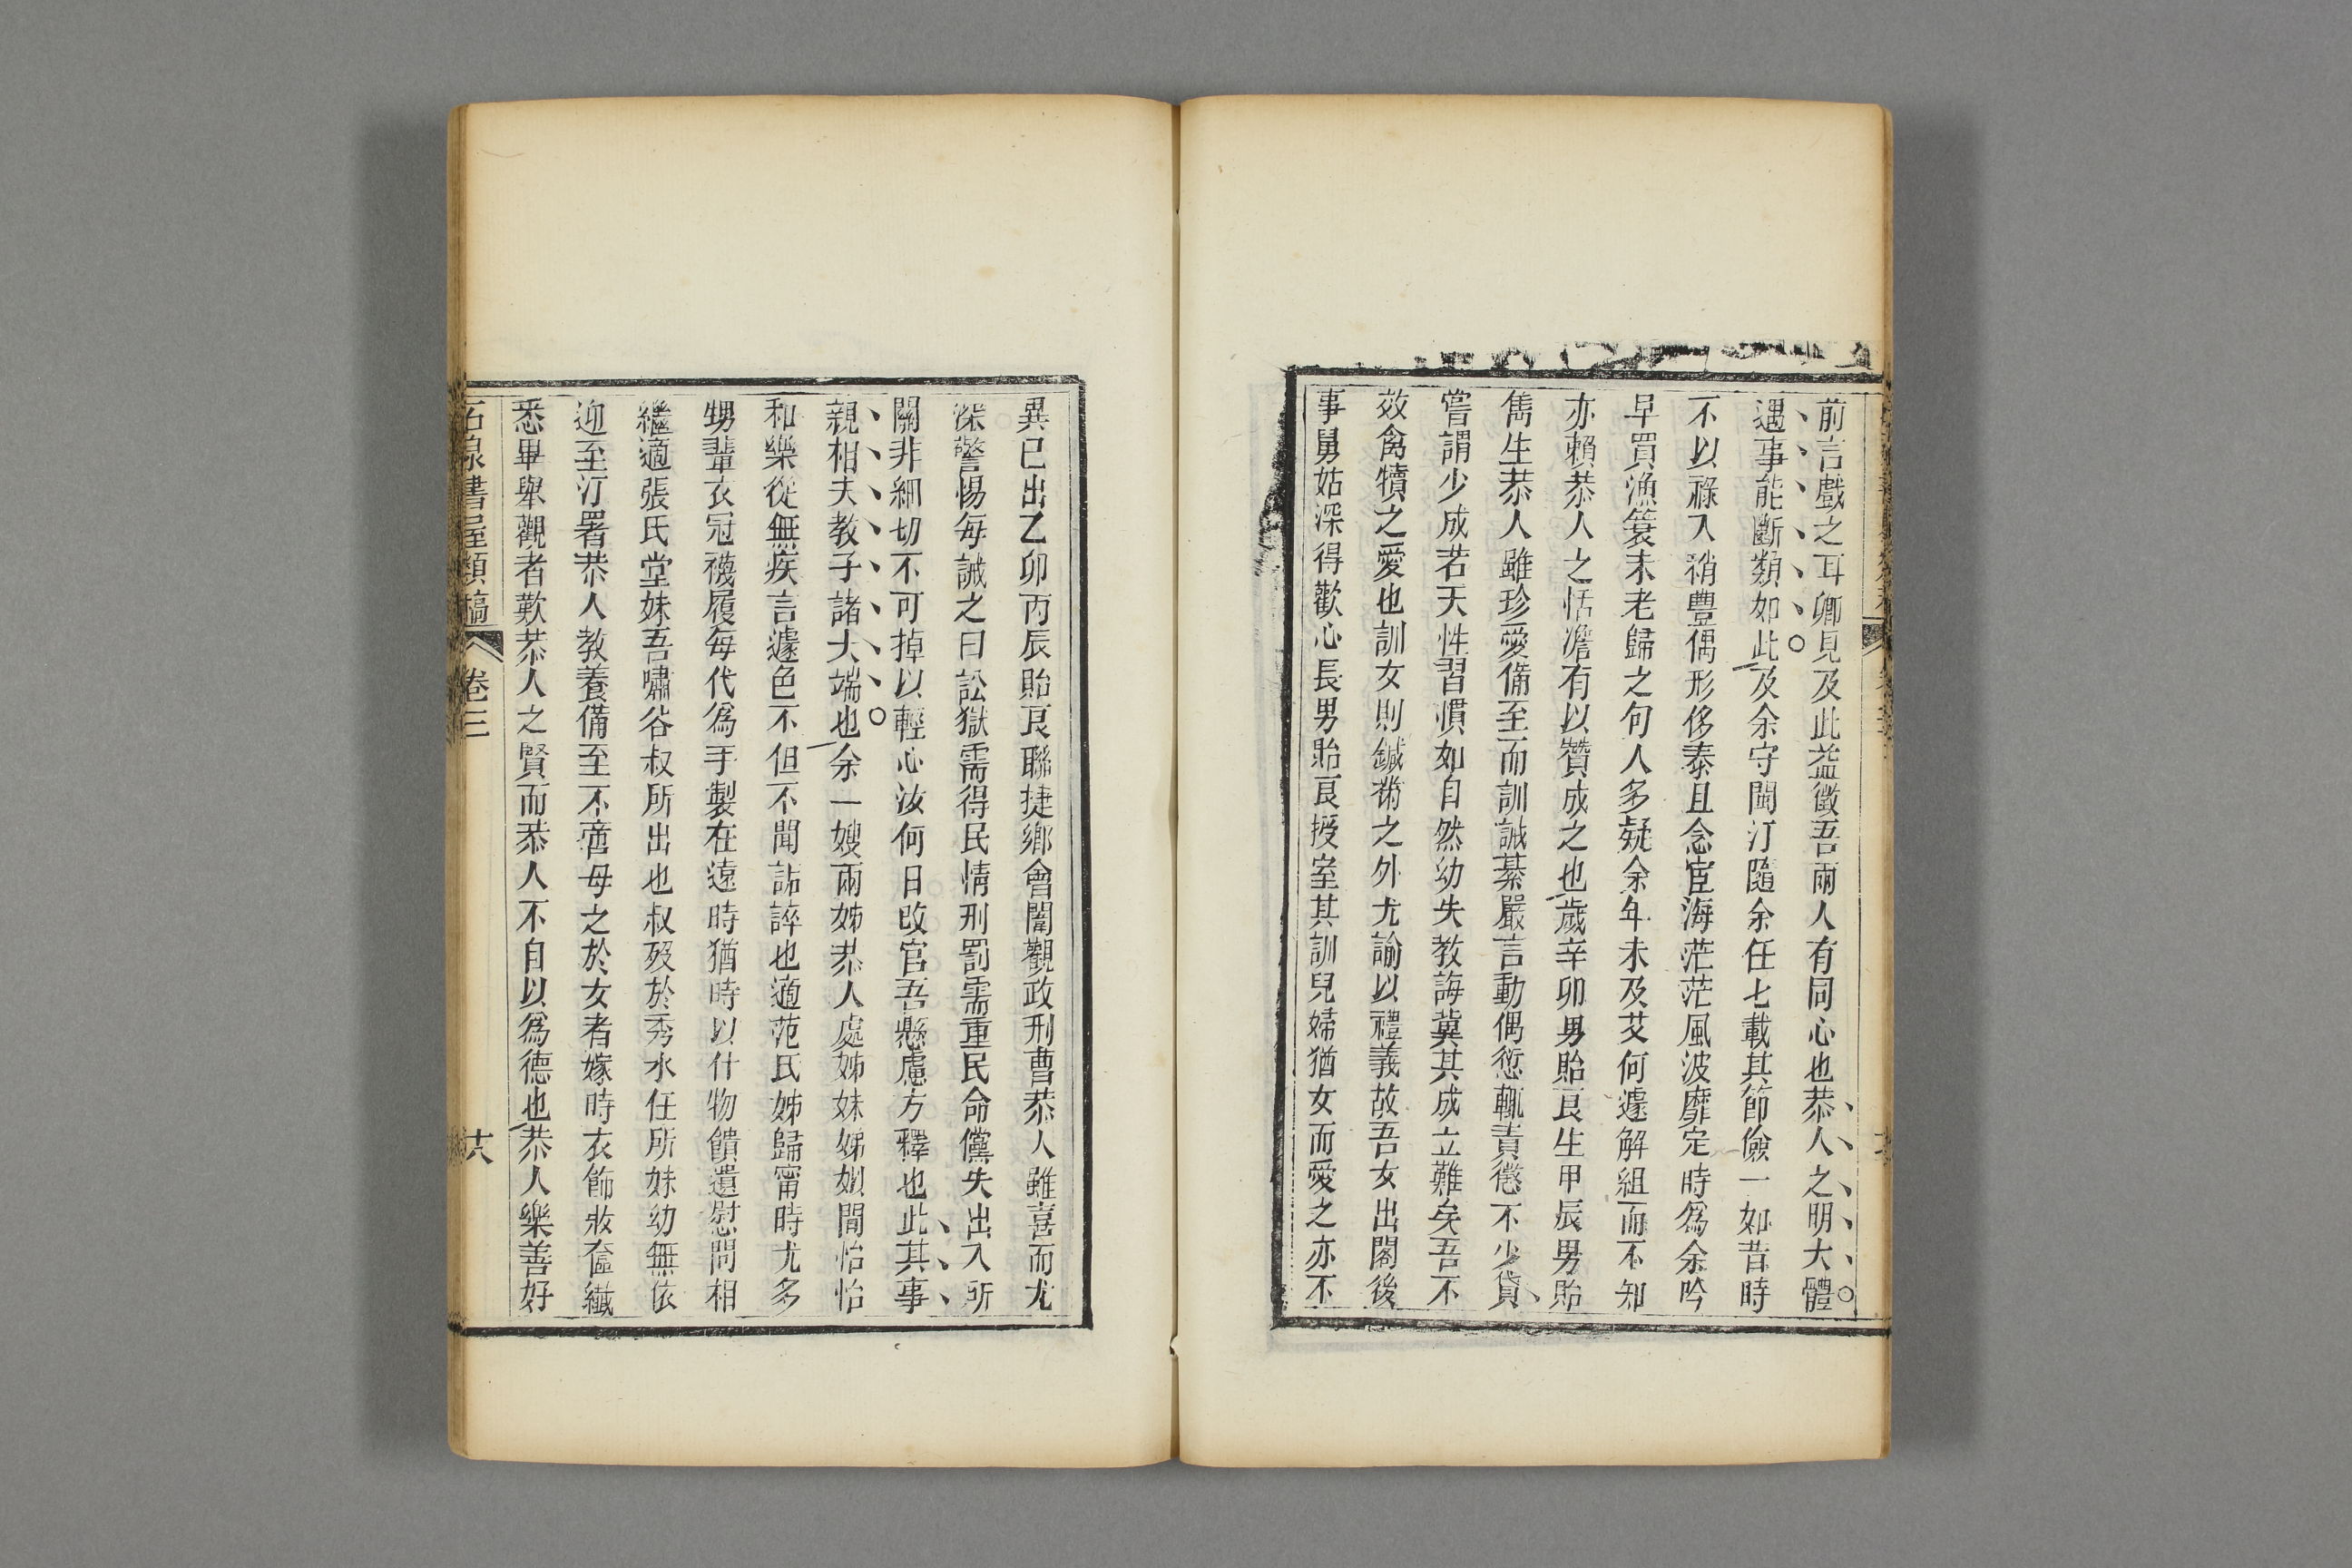 前言戲之耳卿見及此益徵吾兩人有同心也恭人之明大體
遇事能斷類如此及余守閩汀隨余任七載其節儉一如昔時
不以祿入稍豐偶形侈泰且念宦海茫茫風波靡定時爲余吟
早買漁簑未老歸之句人多疑余年未及艾何遽解組而不知
亦賴恭人之恬澹有以贊成之也歲辛卯男貽良生甲辰男貽
雋生恭人雖珍愛備至而訓誡綦嚴言動偶愆輒責懲不少貸
嘗謂少成若天性習慣如自然幼失教誨冀其成立難矣吾不
效禽犢之愛也訓女則鍼黹之外尤諭以禮義故吾女出閣後
事舅姑深得歡心長男貽良授室其訓兒婦猶女而愛之亦不
異已出乙卯丙辰貽良聯捷鄉會闈觀政刑曹恭人雖喜而尤
深警惕每誡之曰訟獄需得民情刑罰需重民命儻失出入所
關非細切不可掉以輕心汝何日改官吾懸慮方釋也此其事
親相夫教子諸大端也余一嫂兩姊恭人處姊妹娣姒間怡怡
和樂從無疾言遽色不但不聞詬誶也適范氏姊歸甯時尤多
甥輩衣冠襪履每代爲手製在遠時猶時以什物饋遺慰問相
繼適張氏堂妹吾嘯谷叔所出也叔歿於秀水任所妹幼無依
迎至汀署恭人教養備至不啻母之於女者嫁時衣飾妝奩纖
悉畢舉觀者歎恭人之賢而恭人不自以爲德也恭人樂善好
石泉書屋類稿
卷三
十八